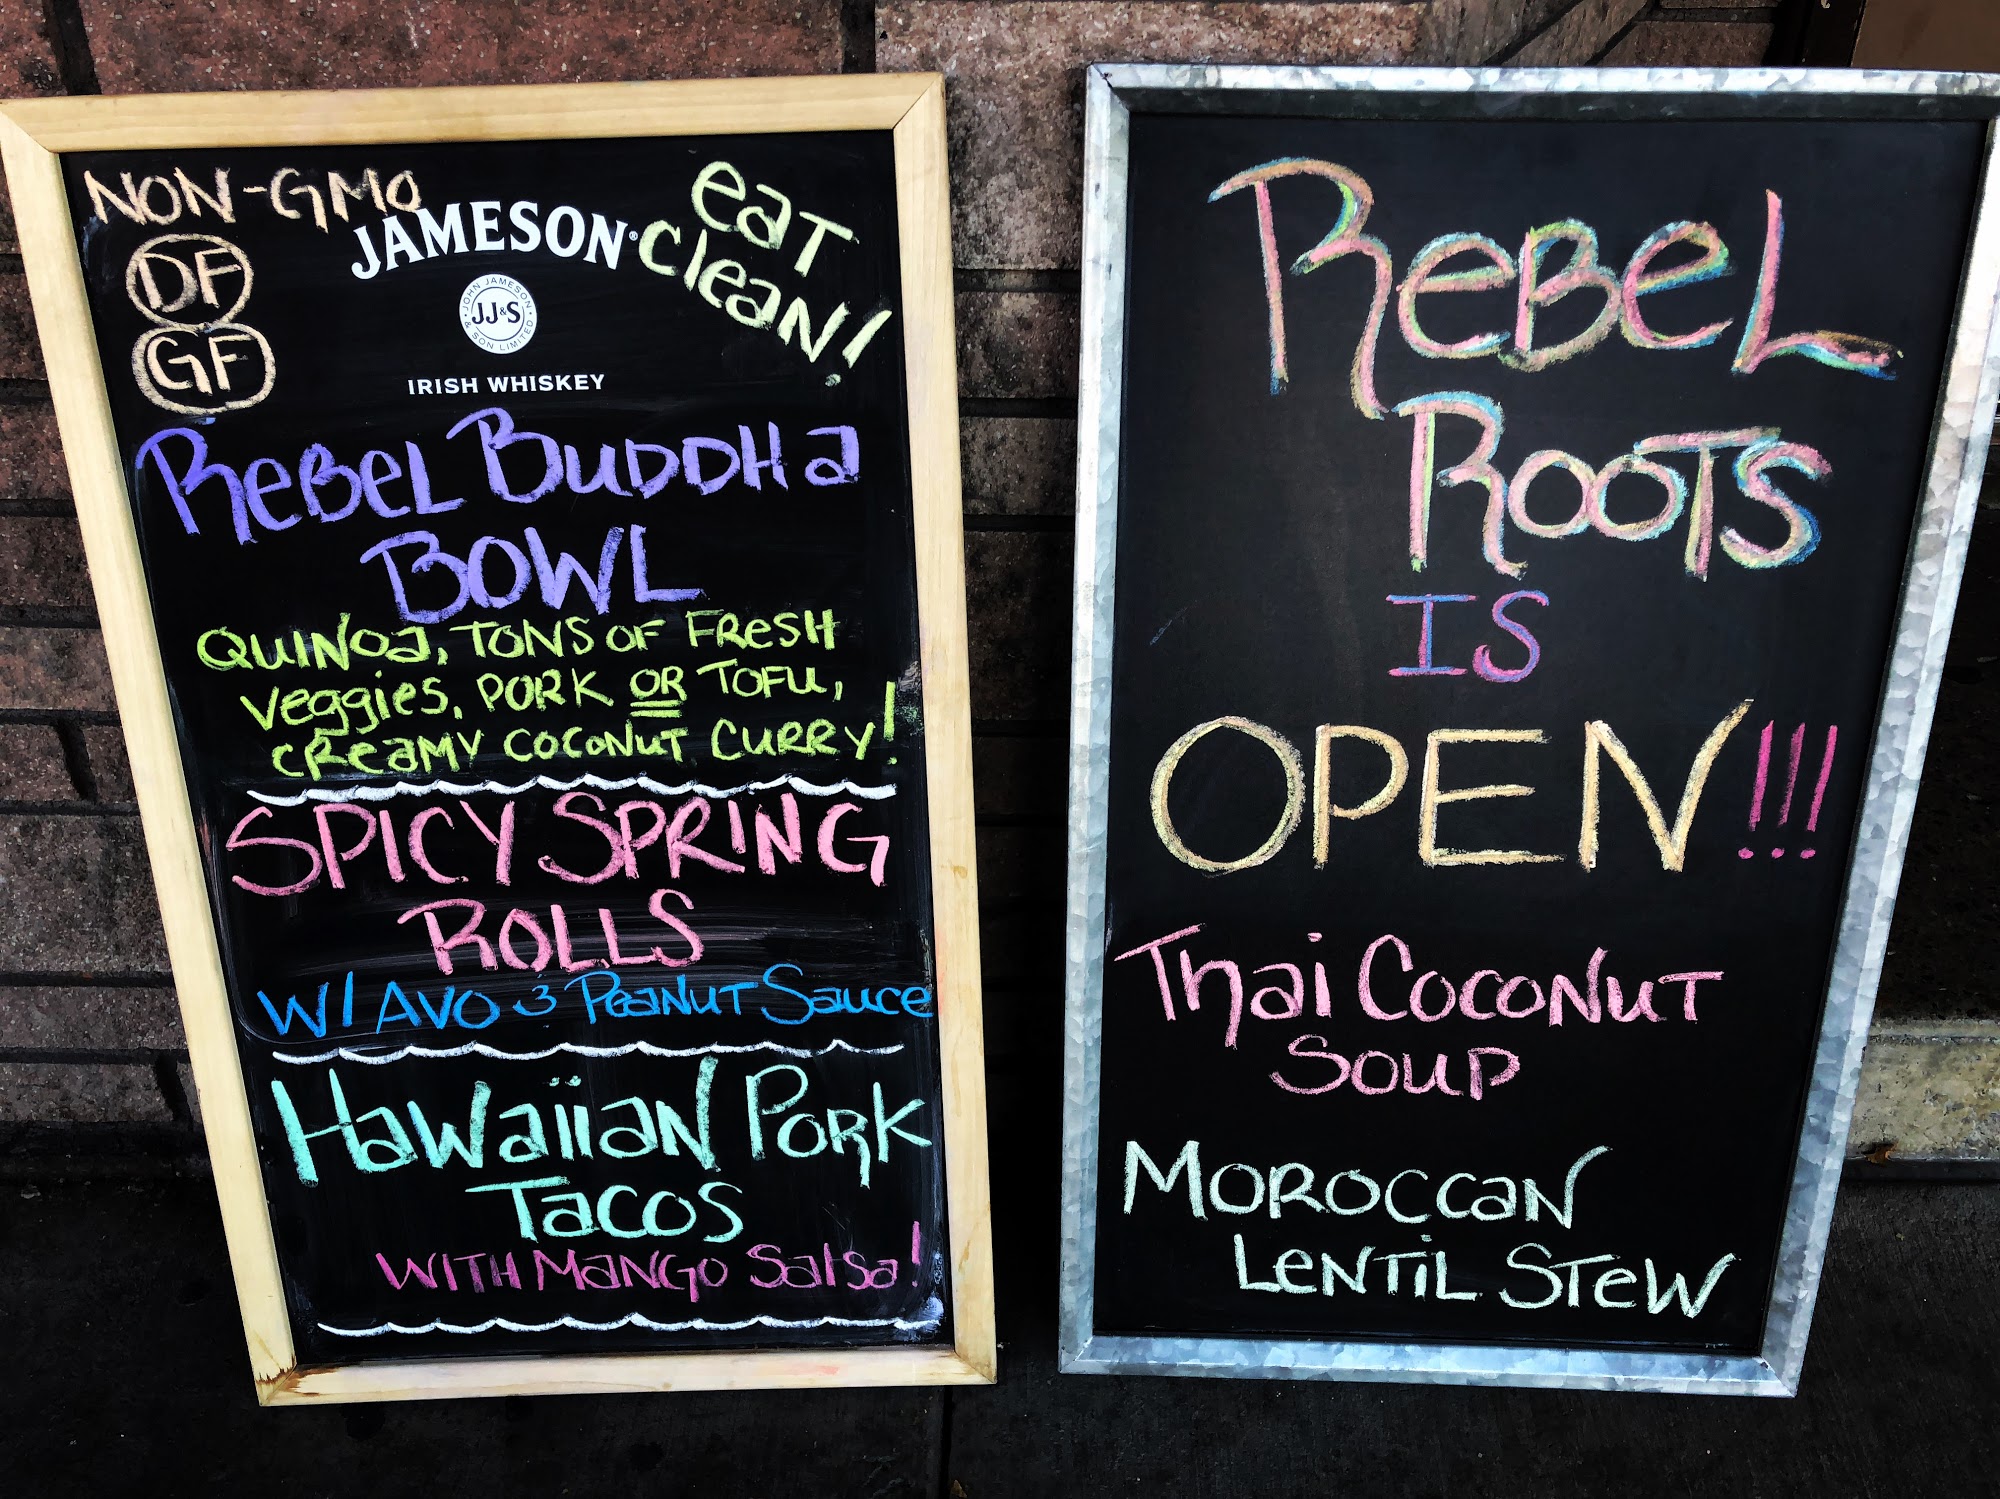 NON-GMO
DF
GF
JAMESON®
JOHN JAMESON & SON LIMITED
JJ&S
IRISH WHISKEY
eat
clean!
Rebel Buddha
BOWL
QUINOa, TONS OF FResH
veggies, PORK OR TOFU,
CReaMY COCONUT CURRY!
SPICY SPRING
ROLLS
W/ AVO & PeaNUT Sauce
Hawaiian Pork
Tacos
WITH MaNGO Salsa!
ReBeL
ROOTS
IS
OPEN!!!
Thai COCONUT
SOUP
MOROCCaN
LeNTiL STeW